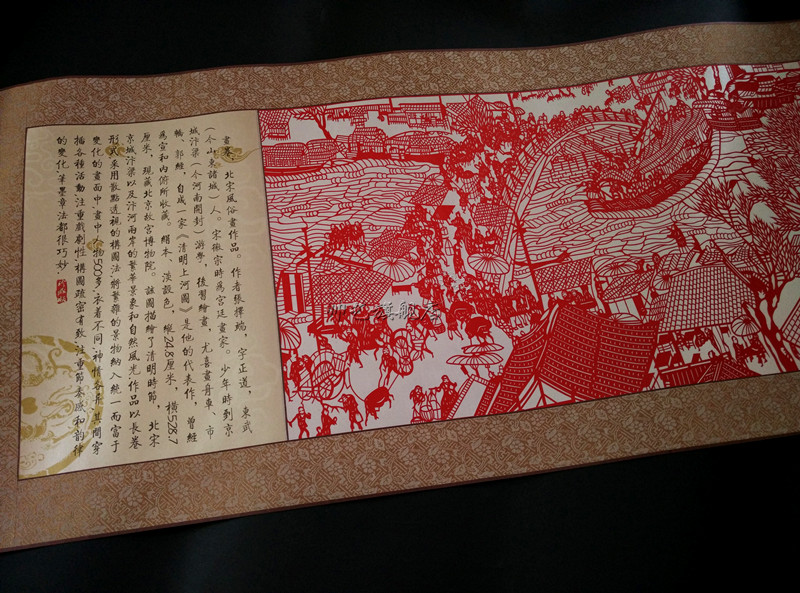 北宋風俗畫作品。作者張擇端，字正道，東武
（今山東諸城）人。宋徽宗時爲宮廷畫家。少年時到京
城汴梁（今河南開封）游學，後習繪畫，尤喜畫舟車、市
橋，郭經，自成一家《清明上河圖》是他的代表作，曾經
爲宣和内俯所收藏。絹本、淡設色，縱24.8厘米，橫528.7
厘米，現藏北京故宮博物院。該圖描繪了清明時節，北宋
京城汴梁以及汴河兩岸的繁華景象和自然風光作品以長卷
形式采用散點透視的構圖法，將繁雜的景物納入統一而富于
變化的畫面中，畫中人物500多，衣着不同，神情各异，其間穿
插各種活動，注重戲劇性，構圖疏密有致，注重節奏感和韵律
的變化，筆墨章法都很巧妙